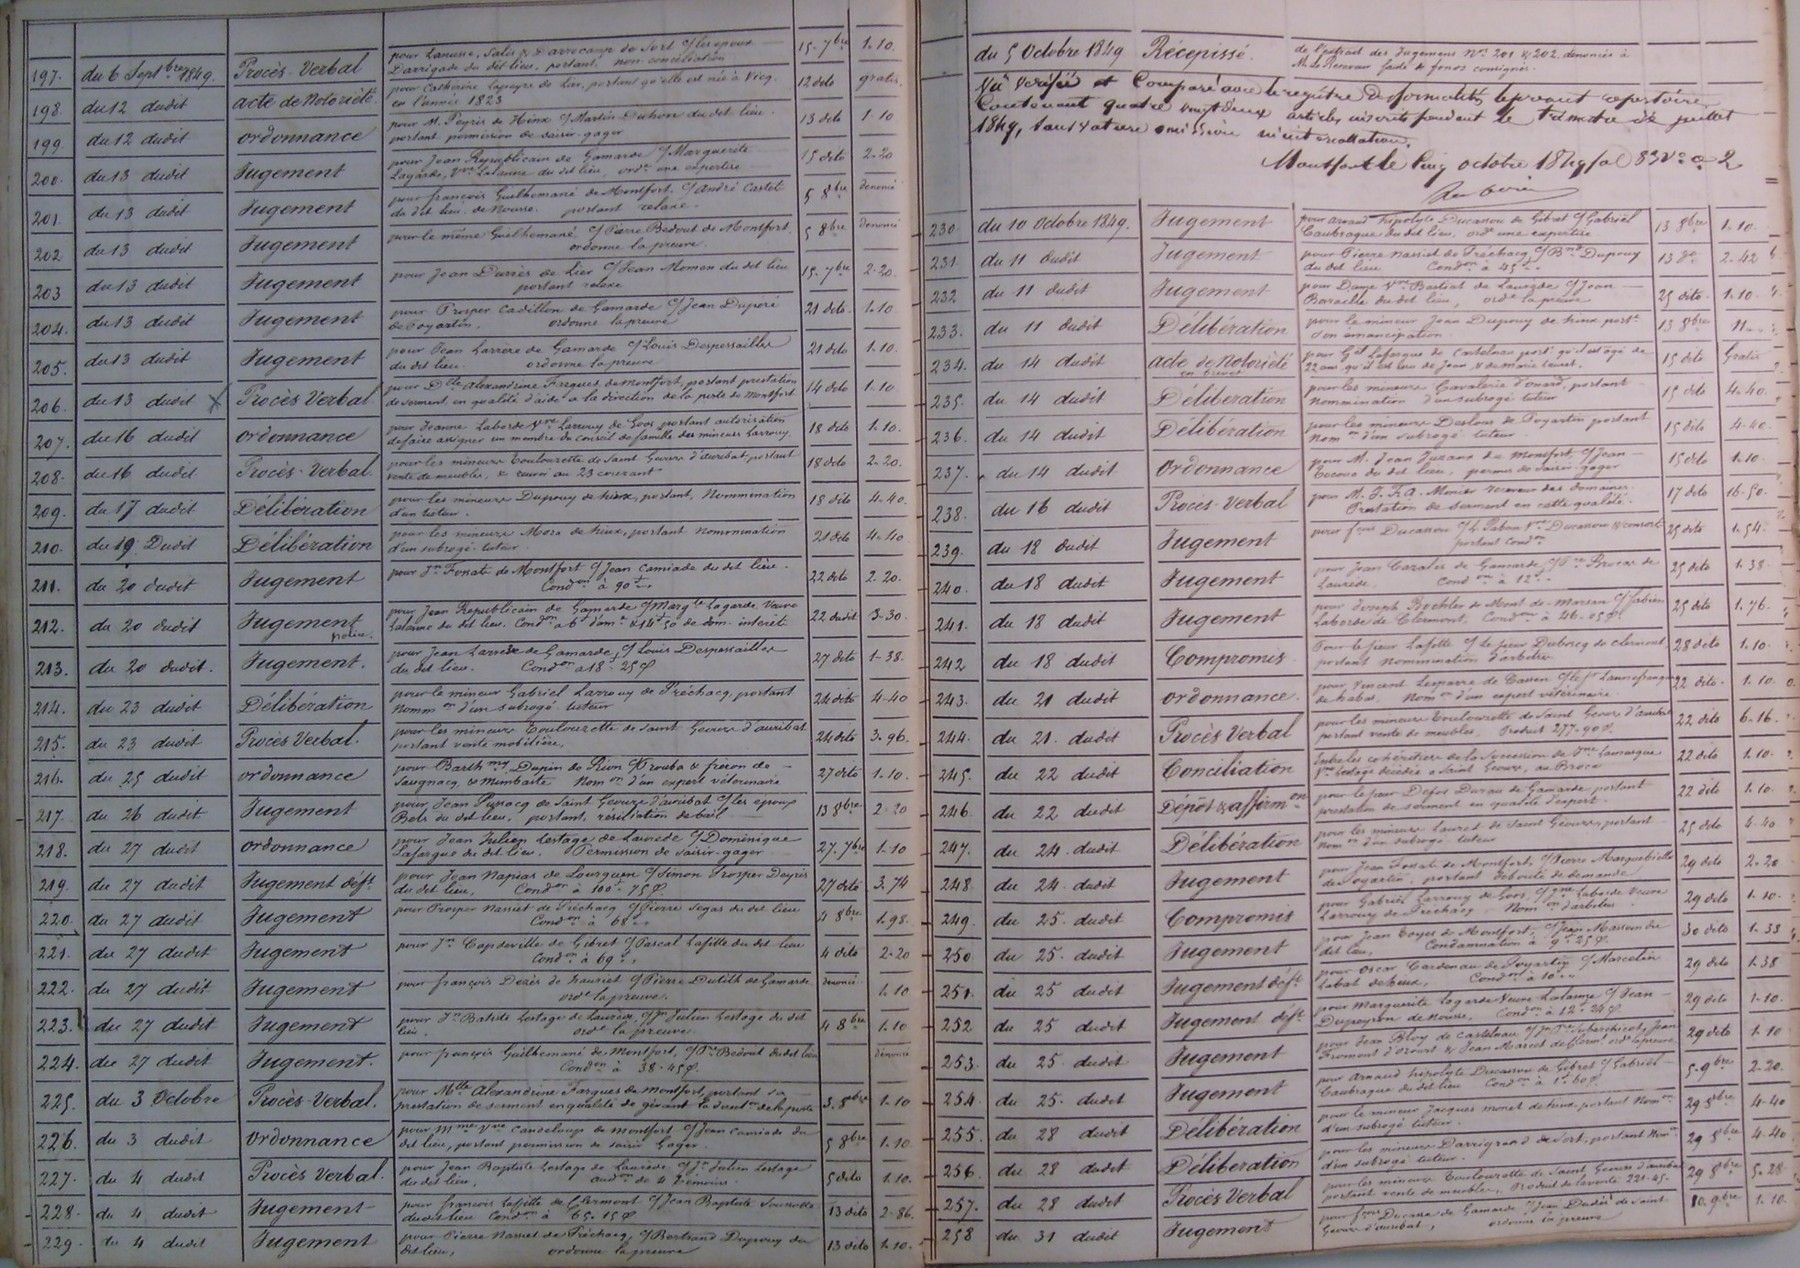 197. du 6 Septbre 1849. Procès-Verbal pour Lanusse, Salis & Darrocamp de Sort c/ les époux 15. 7bre 1-10.
Darrigade du dit lieu, portant non conciliation
198. du 12 dudit acte de Notoriété pour Catherine Lapeyre de Lier, portant qu'elle est née à Vicq. 12 dito gratis
en l'année 1823
199. du 12 dudit ordonnance pour M. Peyris de Hinx c/ Martin Duhon du dit lieu. 13 dito 1-10
portant permission de saisir-gager
200. du 13 dudit Jugement pour Jean Républicain de Gamarde c/ Marguerite 15 dito 2-20
Lagarde, Vve Lalanne du dit lieu, orde une expertise
201. du 13 dudit Jugement pour françois Guilhemané de Montfort c/ André Castet 5 8bre Dénoncé
du dit lieu de Nousse. portant relaxe.
202 du 13 dudit Jugement pour le même Guilhemané c/ Pierre Bedout de Montfort. 5 8bre Dénoncé
ordonne la preuve.
203 du 13 dudit Jugement pour Jean Darrès de Lier c/ Jean Momen du dit lieu 15. 7bre 2-20.
portant relaxe
204. du 13 dudit Jugement pour Prosper Cadillon de Gamarde c/ Jean Duporé 21 dito 1-10.
de Poyartin, ordonne la preuve
205. du 13 dudit Jugement pour Jean Larrère de Gamarde c/ Louis Despessailles 21 dito 1-10.
du dit lieu ordonne la preuve
206. du 13 dudit Procès Verbal pour Dlle Alexandrine Fargues de Montfort, portant prestation 14 dito 1-10
de serment, en qualité d'aide a la direction de la poste de Montfort
207. du 16 dudit ordonnance pour Jeanne Laborde Vve Larrouy de Goos portant autorisation 18 dito 1-10.
de faire assigner un membre du conseil de famille des mineurs Larrouy.
208. du 16 dudit Procès-Verbal pour les mineurs Toulouzette de Saint Geours d'auribat, portant 18 dito 2-20.
vente de meubles, & renvoi au 23 courant
209. du 17 dudit Délibération pour les mineurs Dupouy de hinx, portant, Nommination 18 dito 4-40.
d'un tuteur.
210. du 19 Dudit Délibération pour les mineurs Mora de hinx, portant nommination 21 dito 4-40
d'un subrogé tuteur
211. du 20 dudit Jugement pour Jn Fonate de Montfort c/ Jean Camiade du dit lieu. 22 dito 2-20.
Condon à 90f
212. du 20 dudit Jugement police. pour Jean Républicain de Gamarde c/ Margte Lagarde, Veuve 22 dudit 3-30.
Lalanne du dit lieu. Condon a 6f d'ame & 14f 50 de dom. intérêt
213. du 20 dudit. Jugement. pour Jean Larrère de Gamarde c/ Louis Despessailles 27 dito 1-38.
du dit lieu. Condon a 18-25
214. du 23 dudit Délibération pour le mineur Gabriel Larrouy de Préchacq, portant 24 dito 4-40
Nommon d'un subrogé tuteur
215. du 23 dudit Procès Verbal. pour les mineurs Toulouzette de Saint Geours d'auribat 24 dito 3-96.
portant vente mobilière,
216. du 25 dudit ordonnance pour Barthmy Dupin de Rion c/ & freron de 27 dito 1-10.
Saugnacq & Mimbaste Nomon d'un expert vétérinaire
217. du 26 dudit Jugement pour Jean Pussacq de Saint Geours d'auribat c/ les époux 13 8bre 2-20
Bats du dit lieu, portant, résiliation de bail
218. du 27 dudit ordonnance pour Jean Julien Lestage de Laurède c/ Dominique 27. 7bre 1-10
Lafargue du dit lieu. Permission de saisir-gager
219. du 27 dudit Jugement déft pour Jean Napias de Lourquen c/ Simon Prosper Deyris 27 dito 3.74
du dit lieu, Condon à 100f 75
220. du 27 dudit Jugement pour Prosper Nassiet de Préchacq c/ Pierre Segas du dit lieu 4 8bre 1.98.
Condon à 68f
221. du 27 dudit Jugement pour Jn Capdeville de Gibret c/ Pascal Lafitte du dit lieu 4 dito 2-20
Condon à 69f
222. du 27 dudit Jugement pour françois Dezès de hauriet c/ Pierre Dutilh de Gamarde dénoncé 1.10
orde la preuve.
223. du 27 dudit Jugement pour Jn Batiste Lestage de Laurède, c/ Jn Julien Lestage du dit 4 8bre 1.10
lieu. orde la preuve
224. du 27 dudit Jugement. pour françois Guilhemané de Montfort, c/ Pre Bedout du dit lieu dénoncé
Condon à 38-45
225. du 3 Octobre Procès-Verbal. pour Mlle Alexandrine Fargues de Montfort portant sa 3. 8bre 1-10
prestation de serment en qualité de gérant la de la poste
226. du 3 dudit Ordonnance pour Mme Vve Candeloup de Montfort c/ Jean Camiade du 5 8bre 1-10.
dit lieu, portant permission de saisir Gager
227. du 4 dudit Procès Verbal. pour Jean Baptiste Lestage de Laurède c/ Jn Julien Lestage 5 dito 1.10.
du dit lieu, audon de 4 témoins
228. du 4 dudit Jugement pour françois Lafitte de Clermont c/ Jean Baptiste 13 dito 2-86.
du dit lieu Condon à 65-15
229. du 4 dudit Jugement pour Pierre Nassiet de Préchacq c/ Bertrand Dupouy du 13 dito 1-10.
dit lieu, ordonne la preuve
du 5 Octobre 1849 Récépissé. de l'extrait des Jugemens Nos 201 & 202 dénoncés à
M. le Receveur faute de fonds consignés.
Vu Vérifié et Comparé avec le registre de formalités le présent répertoire
Contenant quatre vingt deux articles inscrits pendant le trimestre de juillet
1849, sans rature omission ni intercallation.
Montfort le Cinq octobre 1849 fol 83 Vo c 2
230. du 10 Octobre 1849. Jugement pour arnaud hipolyte Ducassou de Gibret c/ Gabriel 13 8bre 1-10.
Caubraque du dit lieu, orde une expertise
231. du 11 dudit Jugement pour Pierre Nassiet de Préchacq c/ Bnd Dupouy 13 do 2-42
du dit lieu Condon à 45f
232 du 11 dudit Jugement pour Dame Vve Bastiat de Laurède c/ Jean 25 dito. 1.10.
du dit lieu, orde la preuve
233. du 11 dudit Délibération pour le mineur Jean Dupouy de hinx portt 13 8bre 11
son émancipation
234. du 14 dudit acte de Notoriété en brevet pour Gel Lafargue de Castelnau portt qu'il est âgé de 15 dito Gratis
22 ans qu'il est fils de Jean & de Marie
235. du 14 dudit Délibération pour les mineurs Cavalerie d'onard, portant 15 dito 4-40.
Nommination d'un subrogé tuteur
236. du 14 dudit Délibération pour les mineurs Deslous de Poyartin portant 15 dito 4-40.
Nomon d'un subrogé tuteur
237. du 14 dudit Ordonnance pour M. Jean Juzans de Montfort, c/ Jean 15 dito 1.10
du dit lieu, permis de saisir gager
238. du 16 dudit Procès-Verbal pour M. J. F. A. Monier receveur des domaines. 17 dito 16-50.
Prestation de serment en cette qualité.
239. du 18 dudit Jugement pour fois Ducassou c/ Vve Ducassou & consort 25 dito 1.54.
portant Condon
240. du 18 dudit Jugement pour Jean Cazales de Gamarde c/ de 25 dito 1.38
Laurède. Condon à 12f
241. du 18 dudit Jugement pour Joseph de Mont-de-Marsan c/ fabien 25 dito 1.76.
Laborde de Clermont, Condon à 46-05
242. du 18 dudit Compromis Pour le sieur Lafitte c/ le sieur Duboscq de clermont 28 dito 1.10.
portant nommination d'arbitre
243. du 21 dudit ordonnance. pour Vincent Lesparre de c/ 22 dito. 1.10.
de habas. Nomon d'un expert vétérinaire
244. du 21. dudit Procès Verbal pour les mineurs Toulouzette de Saint Geours d'auribat 22 dito 6-16.
portant vente de meubles. Produit 277-90
245. du 22 dudit Conciliation Entre les cohéritiers de la succession de Dme Lamarque 22 dito 1.10.
Vve Lestage décédée a Saint Geours, au Broca
246. du 22 dudit Dépôt & affirmon pour le sieur Defos Durau de Gamarde portant 22 dito 1.10.
prestation de serment en qualité d'expert.
247. du 24. dudit Délibération pour les mineurs Lauret de Saint Geours portant 25 dito 4-40
Nomon d'un subrogé tuteur
248. du 24. dudit Jugement pour Jean Fonate de Montfort, c/ Pierre 29 dito 2-20
de Poyartin, portant débouté de demande
249. du 25. dudit Compromis pour Gabriel Larrouy de Goos, c/ Jne Laborde Veuve 29 dito 1.10.
Larrouy de Préchacq Nomon d'arbitres
250 du 25. dudit Jugement pour Jean de Montfort, c/ Jean du 30 dito 1.38
dit lieu, Condamnation à 9f 25
251. du 25 dudit Jugement déft pour Oscar Cardenau de Poyartin c/ Marcelin 29 dito 1.38
Labat de hinx, Condon à 10f
252 du 25 dudit Jugement déft pour Marguerite Lagarde Veuve Lalanne c/ Jean 29 dito 1-10.
Dupeyron de Nousse, Condon à 12f 24
253. du 25. dudit Jugement pour Jean de Castelnau c/ Jean 29 dito 1.10
d'Ozourt & Jean Marcet de Clermt orde la preuve
254. du 25. dudit Jugement pour Arnaud hipolyte Ducassou de Gibret c/ Gabriel 5. 9bre 2-20.
Caubraque du dit lieu Condon à 1f 60
255. du 28 dudit Délibération pour le mineur Jacques monet de hinx, portant Nomon 29 8bre 4-40
d'un subrogé tuteur.
256. du 28 dudit Délibération pour les mineurs Darrigrand de Sort, portant Nomon 29 8bre 4-40.
d'un subrogé tuteur.
257. du 28 dudit Procès Verbal pour les mineurs Toulouzette de Saint Geours d'auribat 29 8bre 5-28.
portant vente de meubles, Produit de la vente 221-45.
258 du 31 dudit Jugement pour fois Ducasse de Gamarde c/ Jean de Saint 10. 9bre 1-10.
Geours d'auribat, ordonne la preuve